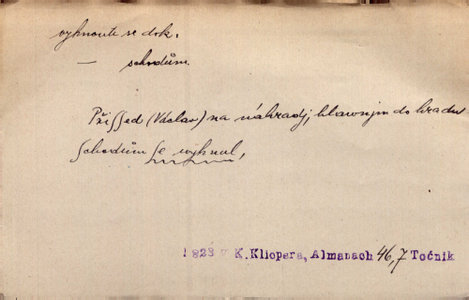 vyhnouti se dok.
— schodům
Přissed (Václav) na náhradj, hlawnjm do hradu
schodům se wyhnul,
1823 V. K. Klicpera, Almanach 46,7 Točník